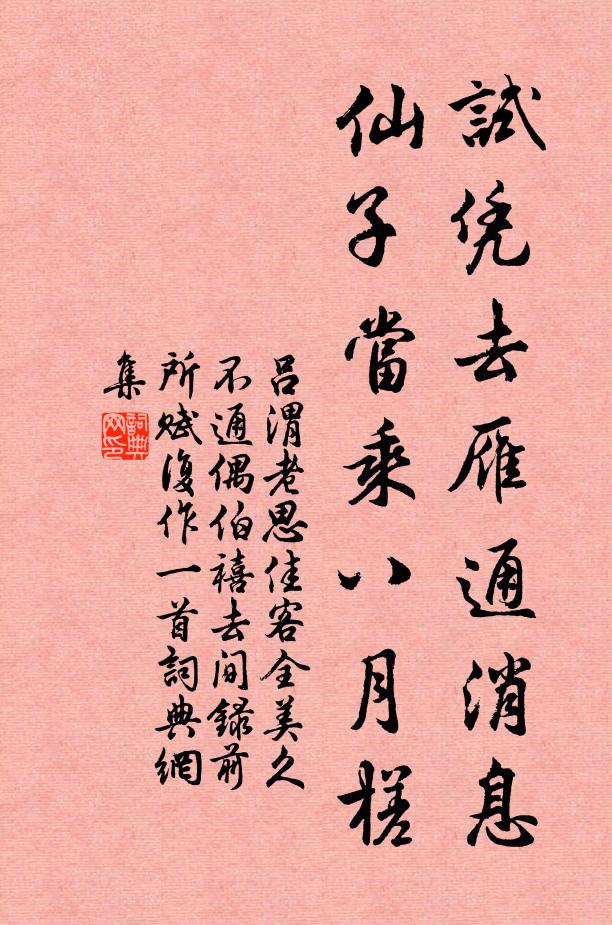 試凭去雁通消息
仙子當乘八月槎
吕渭老思佳客全美久
不通偶伯禧去间錄前
所赋復作一首詞典網
集
詞典
网印